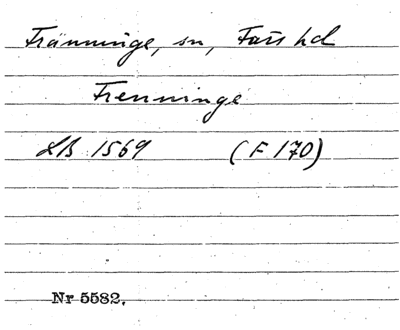 Fränninge, sn, Färs hd
Frenninge
LB 1569 (F 170)
Nr 5582.